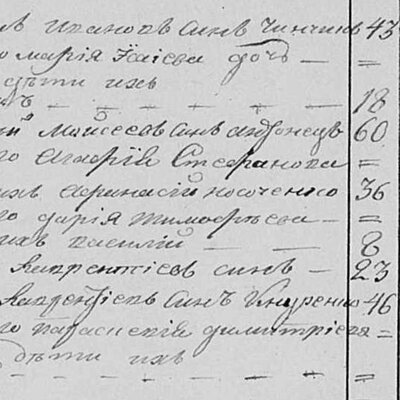 Ивановъ синъ Чинчикъ 43
го Марія Исаіева дочь — =
дѣти ихъ
— — — — 18
Моѵсеевъ синъ 60
го Агафія Стефанова =
ихъ Афанасій Носоченко 36
го Дарія Тимофѣева — =
ихъ Василій — — 8
Лаврентіевъ синъ — 23
Лаврентіевъ синъ 46
го Параскевія Димитріева =
дѣти ихъ
— — — — — =